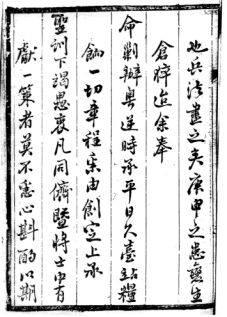 也兵法盡之矣庚申之患變生
倉猝迨余奉
命剿辦粵逆時承平日久臺站糧
餉一切章程系由創定上承
聖訓下竭愚衷凡同儕暨將士中有
獻一策者莫不悉心斟酌以期